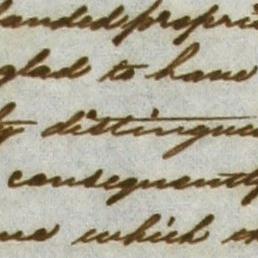 landed propri
glad to have
ly distingue
consequently
ue which